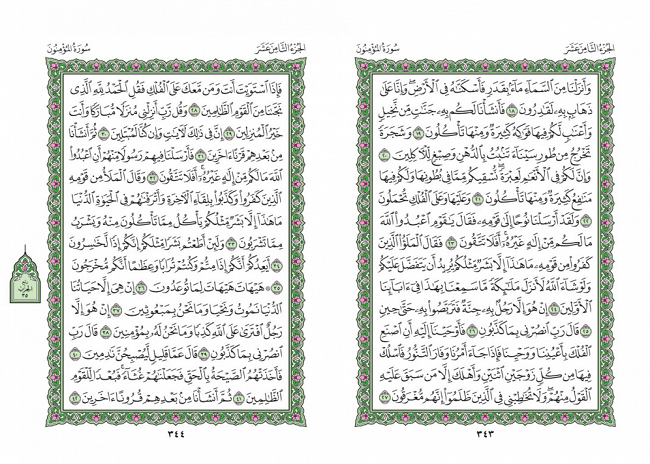 الجُزْءُ الثَّامِنُ عَشَرَ سُورَةُ المُؤْمِنُونَ
وَأَنزَلْنَا مِنَ السَّمَآءِ مَآءًۢ بِقَدَرٍ فَأَسْكَنَّٰهُ فِي الْأَرْضِۖ وَإِنَّا عَلَىٰ
ذَهَابِۭ بِهِۦ لَقَٰدِرُونَ ١٨ فَأَنشَأْنَا لَكُم بِهِۦ جَنَّٰتٍ مِّن نَّخِيلٍ
وَأَعْنَٰبٍ لَّكُمْ فِيهَا فَوَٰكِهُ كَثِيرَةٌ وَمِنْهَا تَأْكُلُونَ ١٩ وَشَجَرَةً
تَخْرُجُ مِن طُورِ سَيْنَآءَ تَنۢبُتُ بِالدُّهْنِ وَصِبْغٍ لِّلْأٓكِلِينَ ٢٠
وَإِنَّ لَكُمْ فِي الْأَنْعَٰمِ لَعِبْرَةًۖ نُّسْقِيكُم مِّمَّا فِي بُطُونِهَا وَلَكُمْ فِيهَا
مَنَٰفِعُ كَثِيرَةٌ وَمِنْهَا تَأْكُلُونَ ٢١ وَعَلَيْهَا وَعَلَى الْفُلْكِ تُحْمَلُونَ
٢٢ وَلَقَدْ أَرْسَلْنَا نُوحًا إِلَىٰ قَوْمِهِۦ فَقَالَ يَٰقَوْمِ اعْبُدُوا۟ اللَّهَ
مَا لَكُم مِّنْ إِلَٰهٍ غَيْرُهُۥٓۖ أَفَلَا تَتَّقُونَ ٢٣ فَقَالَ الْمَلَؤُا۟ الَّذِينَ
كَفَرُوا۟ مِن قَوْمِهِۦ مَا هَٰذَآ إِلَّا بَشَرٌ مِّثْلُكُمْ يُرِيدُ أَن يَتَفَضَّلَ عَلَيْكُمْ
وَلَوْ شَآءَ اللَّهُ لَأَنزَلَ مَلَٰٓئِكَةً مَّا سَمِعْنَا بِهَٰذَا فِيٓ ءَابَآئِنَا
الْأَوَّلِينَ ٢٤ إِنْ هُوَ إِلَّا رَجُلٌۢ بِهِۦ جِنَّةٌ فَتَرَبَّصُوا۟ بِهِۦ حَتَّىٰ حِينٍ
٢٥ قَالَ رَبِّ انصُرْنِي بِمَا كَذَّبُونِ ٢٦ فَأَوْحَيْنَآ إِلَيْهِ أَنِ اصْنَعِ
الْفُلْكَ بِأَعْيُنِنَا وَوَحْيِنَا فَإِذَا جَآءَ أَمْرُنَا وَفَارَ التَّنُّورُۙ فَاسْلُكْ
فِيهَا مِن كُلٍّ زَوْجَيْنِ اثْنَيْنِ وَأَهْلَكَ إِلَّا مَن سَبَقَ عَلَيْهِ
الْقَوْلُ مِنْهُمْۖ وَلَا تُخَٰطِبْنِي فِي الَّذِينَ ظَلَمُوٓا۟ إِنَّهُم مُّغْرَقُونَ ٢٧
٣٤٣
الجُزْءُ الثَّامِنُ عَشَرَ سُورَةُ المُؤْمِنُونَ
فَإِذَا اسْتَوَيْتَ أَنتَ وَمَن مَّعَكَ عَلَى الْفُلْكِ فَقُلِ الْحَمْدُ لِلَّهِ الَّذِي
نَجَّىٰنَا مِنَ الْقَوْمِ الظَّٰلِمِينَ ٢٨ وَقُل رَّبِّ أَنزِلْنِي مُنزَلًا مُّبَارَكًا وَأَنتَ
خَيْرُ الْمُنزِلِينَ ٢٩ إِنَّ فِي ذَٰلِكَ لَأٓيَٰتٍ وَإِن كُنَّا لَمُبْتَلِينَ ٣٠ ثُمَّ أَنشَأْنَا
مِنۢ بَعْدِهِمْ قَرْنًا ءَاخَرِينَ ٣١ فَأَرْسَلْنَا فِيهِمْ رَسُولًا مِّنْهُمْ أَنِ اعْبُدُوا۟
اللَّهَ مَا لَكُم مِّنْ إِلَٰهٍ غَيْرُهُۥٓۖ أَفَلَا تَتَّقُونَ ٣٢ وَقَالَ الْمَلَأُ مِن قَوْمِهِ
الَّذِينَ كَفَرُوا۟ وَكَذَّبُوا۟ بِلِقَآءِ الْأٓخِرَةِ وَأَتْرَفْنَٰهُمْ فِي الْحَيَوٰةِ الدُّنْيَا
مَا هَٰذَآ إِلَّا بَشَرٌ مِّثْلُكُمْ يَأْكُلُ مِمَّا تَأْكُلُونَ مِنْهُ وَيَشْرَبُ
مِمَّا تَشْرَبُونَ ٣٣ وَلَئِنْ أَطَعْتُم بَشَرًا مِّثْلَكُمْ إِنَّكُمْ إِذًا لَّخَٰسِرُونَ
٣٤ أَيَعِدُكُمْ أَنَّكُمْ إِذَا مِتُّمْ وَكُنتُمْ تُرَابًا وَعِظَٰمًا أَنَّكُم مُّخْرَجُونَ
٣٥ هَيْهَاتَ هَيْهَاتَ لِمَا تُوعَدُونَ ٣٦ إِنْ هِيَ إِلَّا حَيَاتُنَا
الدُّنْيَا نَمُوتُ وَنَحْيَا وَمَا نَحْنُ بِمَبْعُوثِينَ ٣٧ إِنْ هُوَ إِلَّا
رَجُلٌ افْتَرَىٰ عَلَى اللَّهِ كَذِبًا وَمَا نَحْنُ لَهُۥ بِمُؤْمِنِينَ ٣٨ قَالَ رَبِّ
انصُرْنِي بِمَا كَذَّبُونِ ٣٩ قَالَ عَمَّا قَلِيلٍ لَّيُصْبِحُنَّ نَٰدِمِينَ ٤٠
فَأَخَذَتْهُمُ الصَّيْحَةُ بِالْحَقِّ فَجَعَلْنَٰهُمْ غُثَآءًۚ فَبُعْدًا لِّلْقَوْمِ
الظَّٰلِمِينَ ٤١ ثُمَّ أَنشَأْنَا مِنۢ بَعْدِهِمْ قُرُونًا ءَاخَرِينَ ٤٢
٣٤٤
الحزب
٣٥